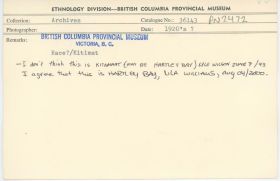 ETHNOLOGY DIVISION—BRITISH COLUMBIA PROVINCIAL MUSEUM
Collection: Archives Catalogue No.: 36143 PN2472
Photographer: Date: 1920's ?
Remarks: BRITISH COLUMBIA PROVINCIAL MUSEUM
VICTORIA, B. C.
Race?/Kitimat
- I don't think this is KITAMAAT (MAY BE HARTLEY BAY) LYLE WILSON JUNE 7 /93
I agree that this is HARTLEY BAY, LILA WILLIAMS, AUG 04/2000.